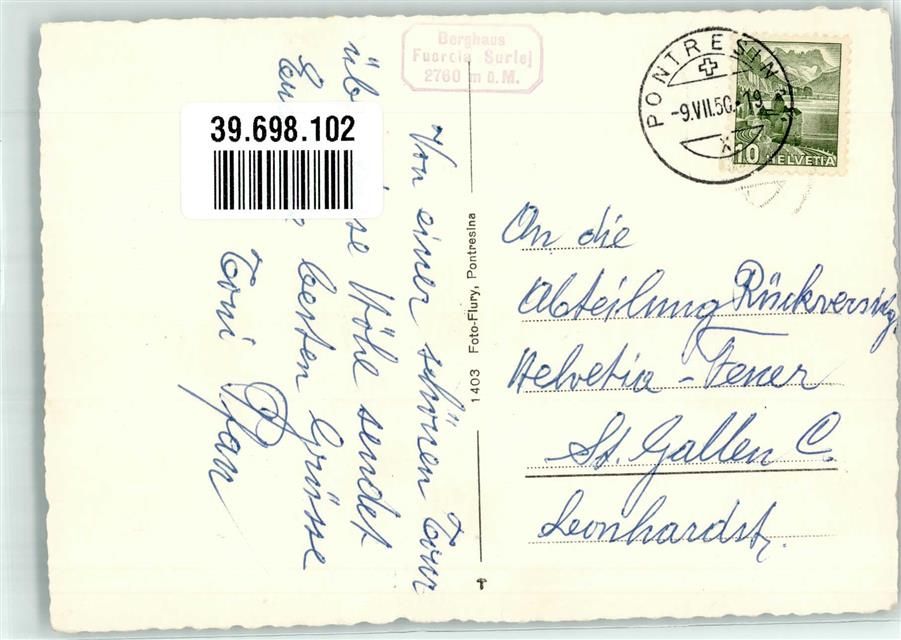 Berghaus
Fuorcla Surlej
2760 m ü. M.
PONTRESINA
-9.VII.50.-19
10 HELVETIA
39.698.102
Von einer schönen Tour
üb se Höhe sendet
Eu besten Grüsse
Toni
1403 Foto-Flury, Pontresina
An die
Abteilung Rückversichg.
Helvetia - Feuer
St. Gallen C.
Leonhardstr.